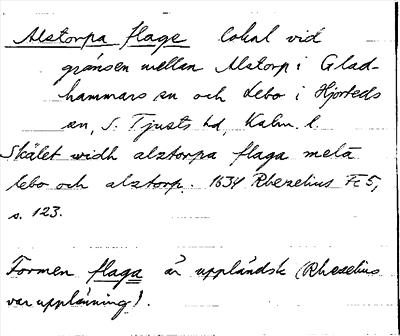 Alstorpa flage lokal vid
gränsen mellan Alstorp i Glad-
hammars sn och Lebo i Hjorteds
sn, S. Tjusts hd, Kalm. l.
Skälet widh alztorpa flaga melä
lebo och alztorp. 1634 Rhezelius Fc5,
s. 123.
Formen flaga är uppländsk (Rhezelius
var upplänning).